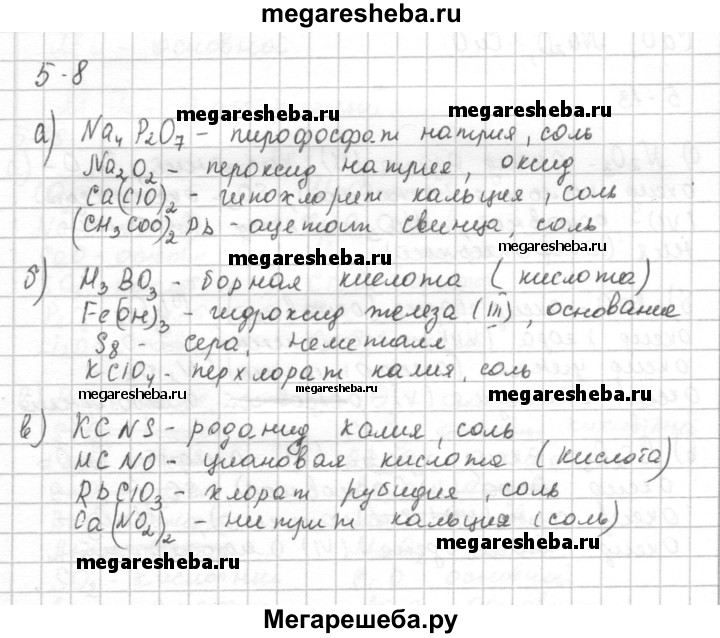 megaresheba.ru
5-8
а) Na₄P₂O₇ - пирофосфат натрия, соль
megaresheba.ru
megaresheba.ru
Na₂O₂ - пероксид натрия, оксид
Ca(ClO)₂ - гипохлорит кальция, соль
(CH₃COO)₂Pb - ацетат свинца, соль
megaresheba.ru
megaresheba.ru
б) H₃BO₃ - борная кислота (кислота)
Fe(OH)₃ - гидроксид железа (III), основание
S₈ - сера, неметалл
KClO₄ - перхлорат калия, соль
megaresheba.ru
megaresheba.ru
в) KCNS - роданид калия, соль
HCNO - циановая кислота (кислота)
RbClO₃ - хлорат рубидия, соль
Ca(NO₂)₂ - нитрит кальция (соль)
megaresheba.ru
megaresheba.ru
Мегарешеба.ру